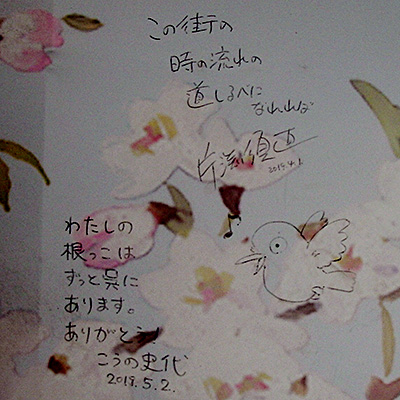 この街の
時の流れの
道しるべに
なれれば
片渕須直
2019.4.1.
わたしの
根っこは
ずっと呉に
あります。
ありがとう!
こうの史代
2019.5.2.